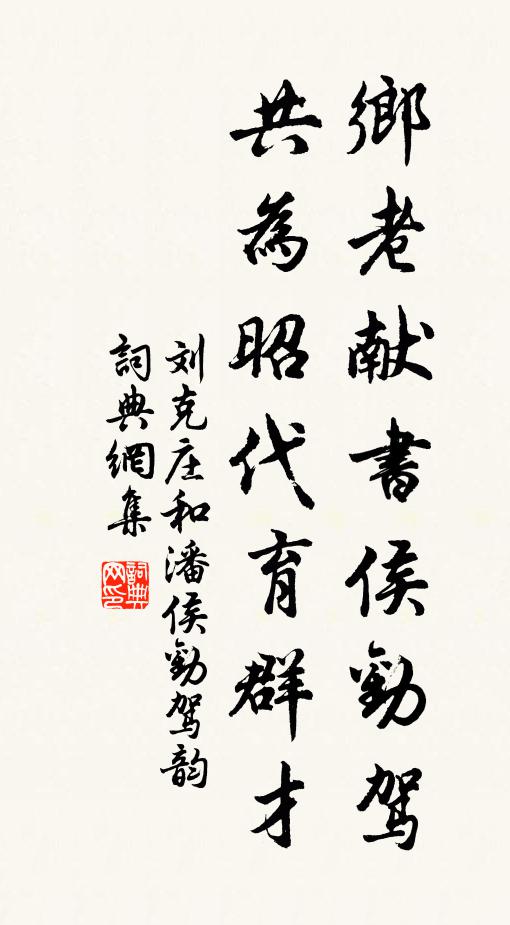 鄉老献書侯勸駕
共為昭代育群才
刘克庄和潘侯勸駕韵
詞典網集
詞典网印